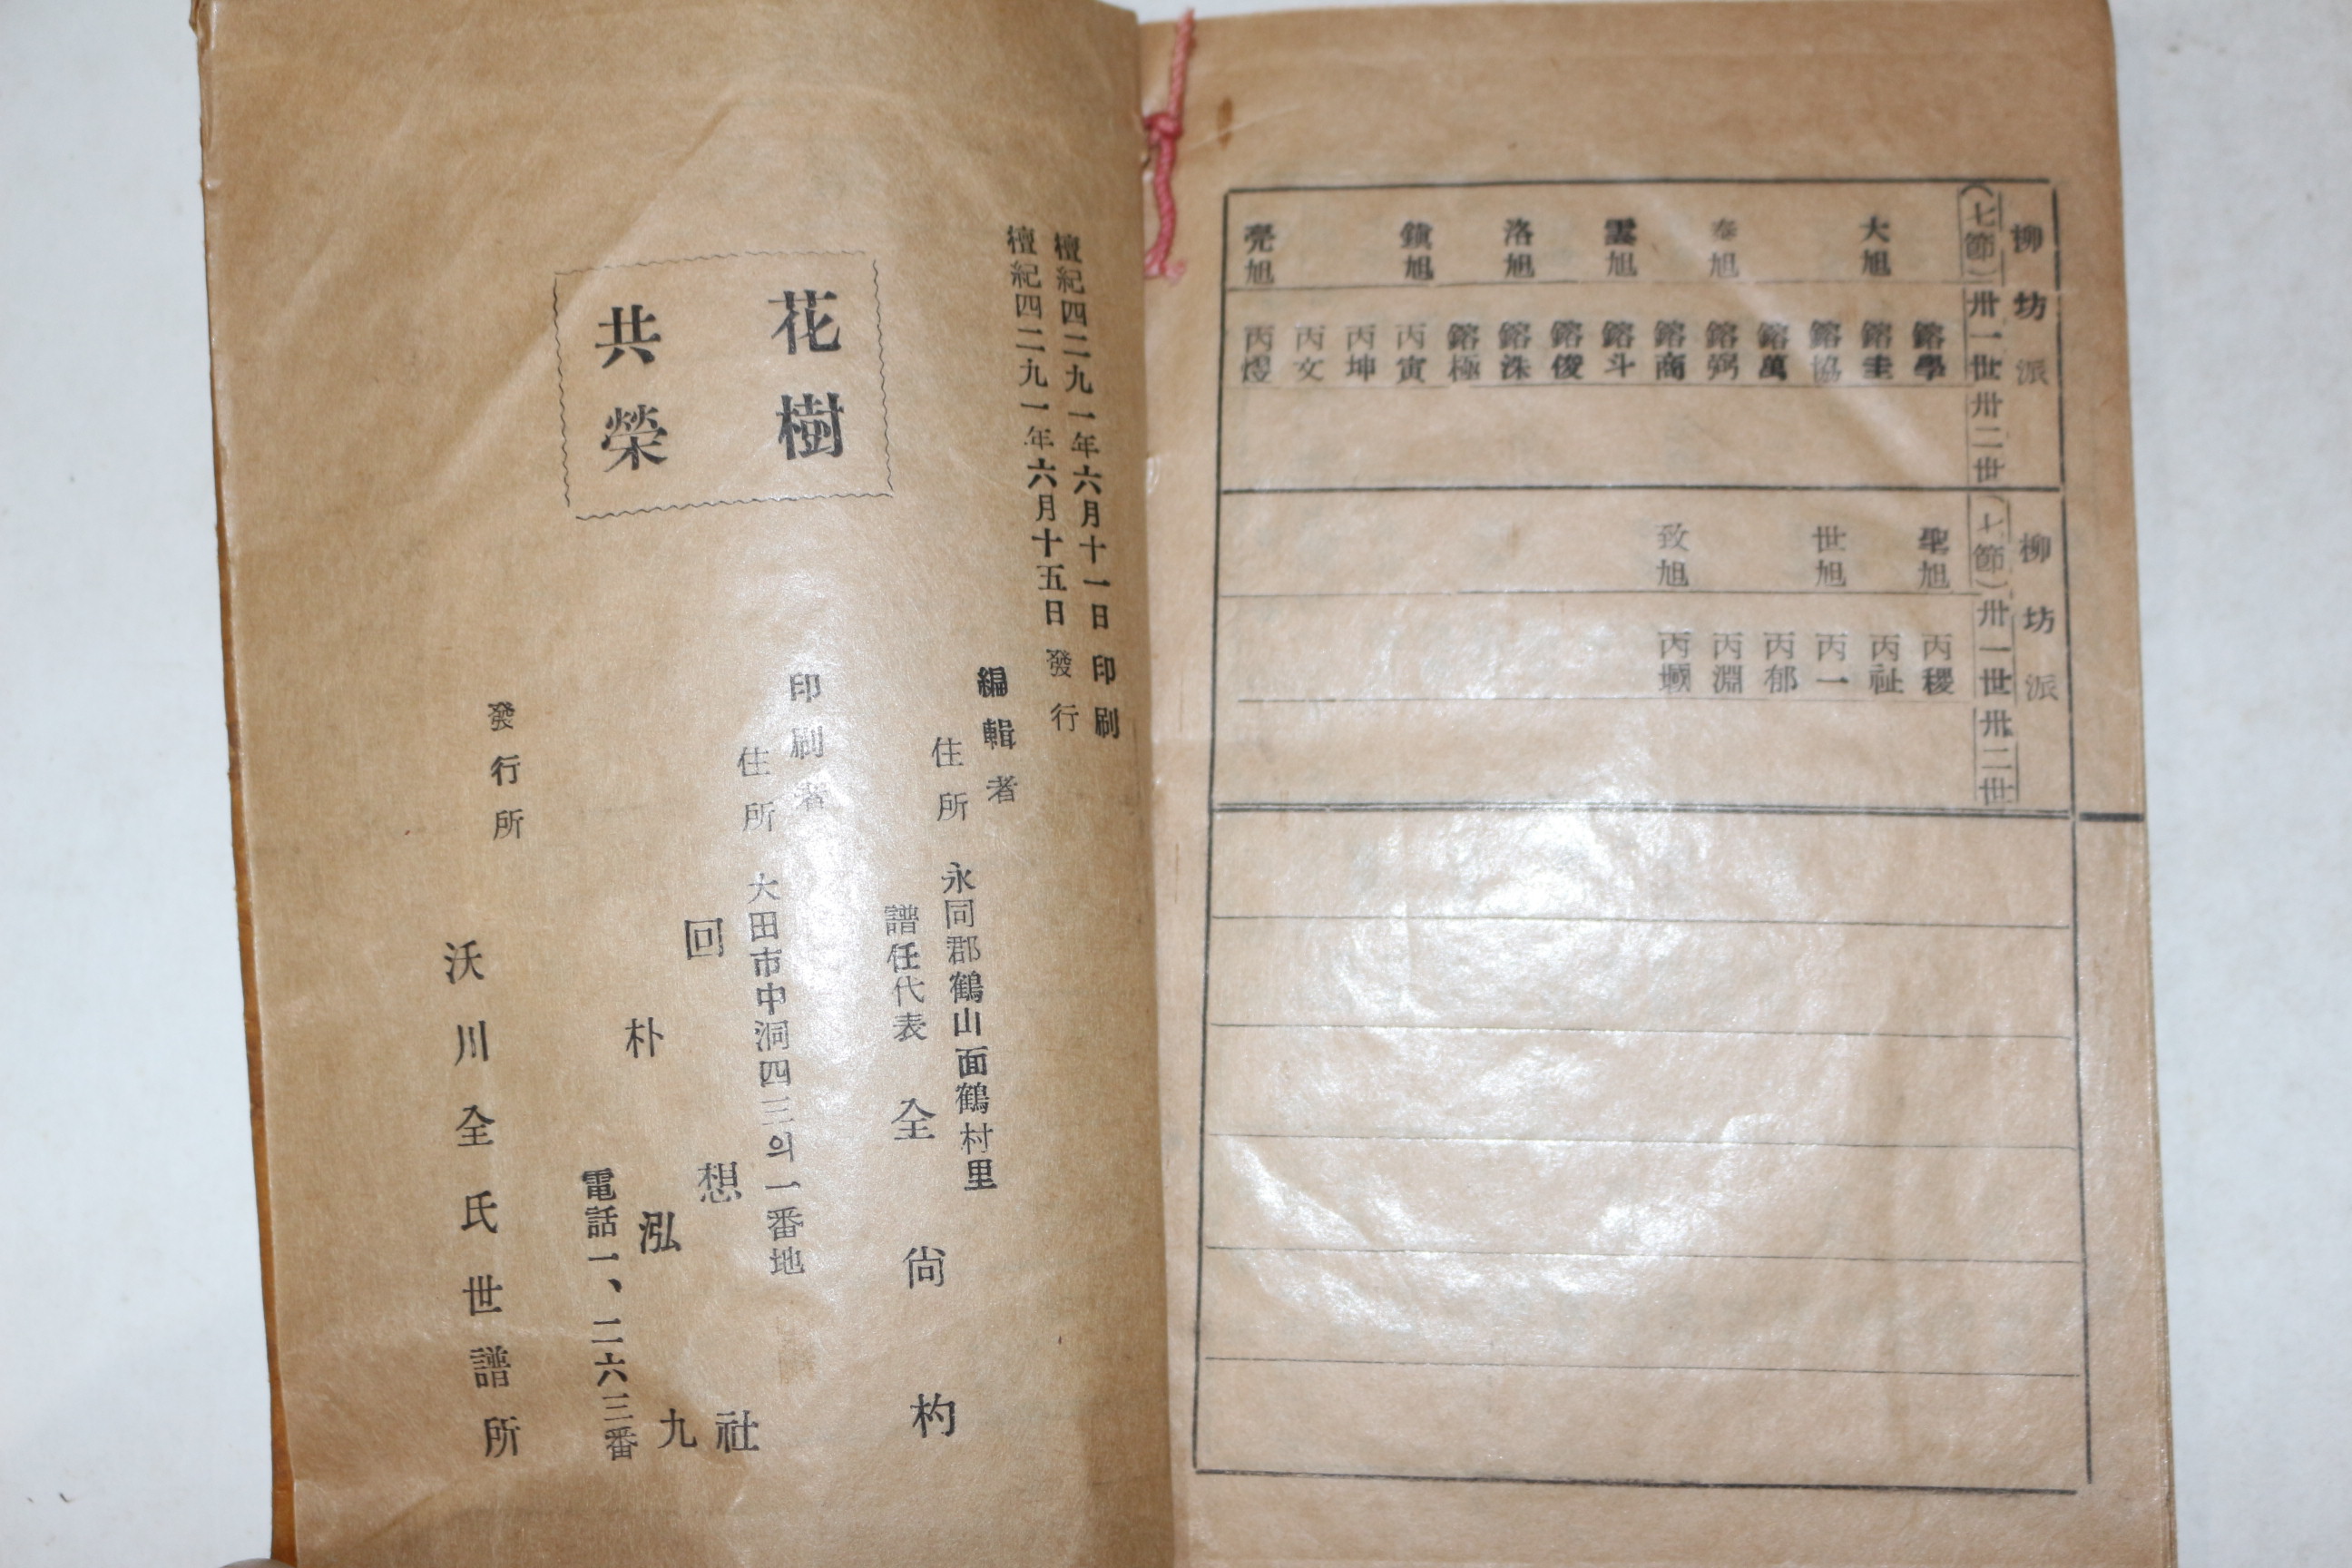 柳坊派
(七節)卅一世卅二世
大旭 泰旭 雲旭 洛旭 鎭旭 亮旭
鎔學 鎔圭 鎔協 鎔萬 鎔弼 鎔商 鎔斗 鎔俊 鎔洙 鎔極 丙寅 丙坤 丙文 丙
柳坊派
(七節)卅一世卅二世
聖旭 世旭 致旭
丙稷 丙祉 丙一 丙郁 丙淵 丙
檀紀四二九一年六月十一日 印刷
檀紀四二九一年六月十五日 發行
編輯者
住所 永同郡鶴山面鶴村里
譜任代表 全尙杓
花樹
共榮
印刷者
住所 大田市中洞四三의一番地
回想社
朴泓九
電話一、二六三番
發行所
沃川全氏世譜所